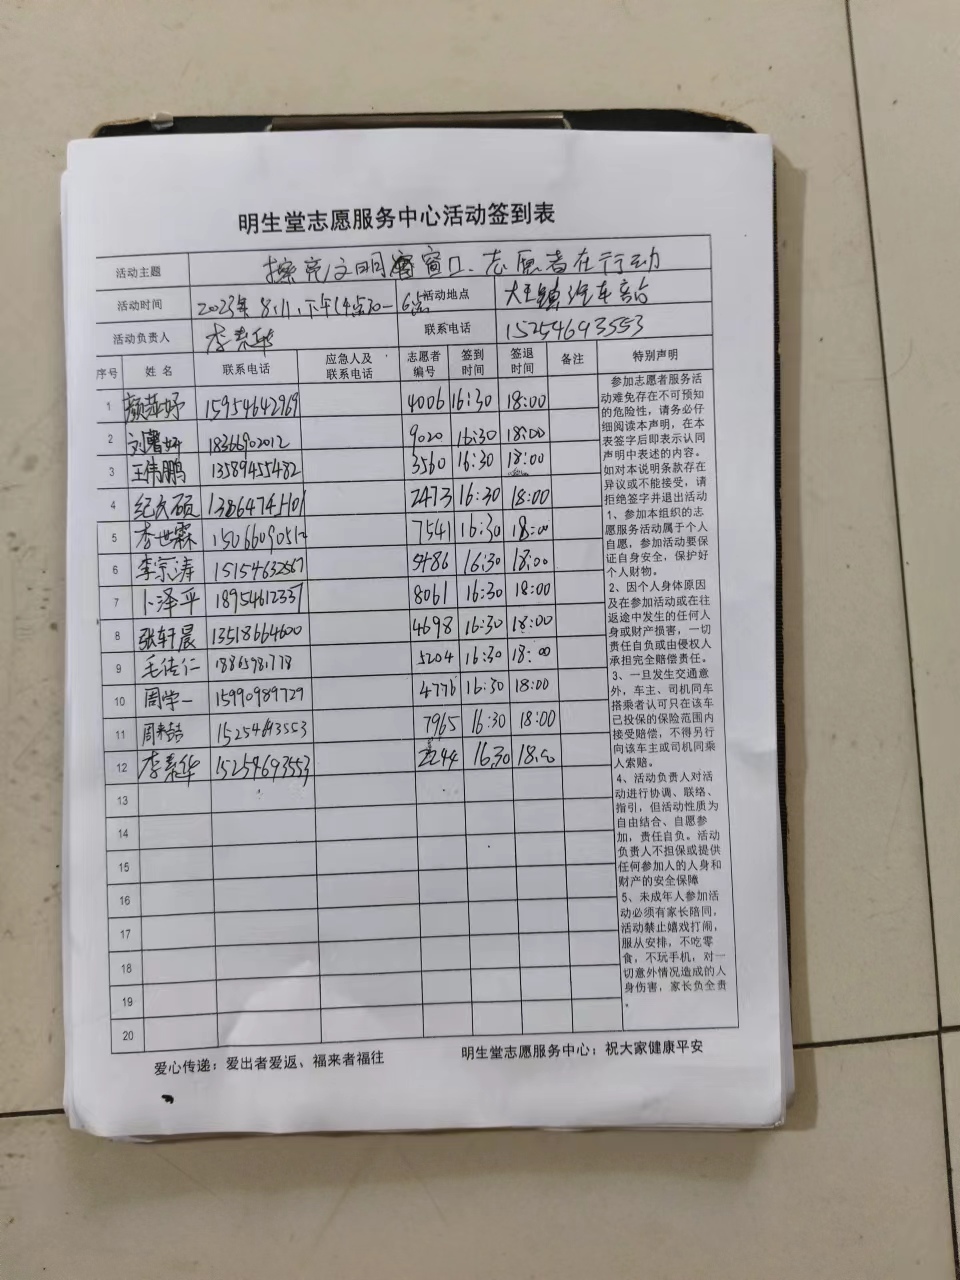 明生堂志愿服务中心活动签到表
活动主题 擦亮文明窗口、志愿者在行动
活动时间 2023年8.11.下午(4点30-6点 活动地点 大王镇汽车站
活动负责人 李素华 联系电话 15254693553
序号 姓名 联系电话 应急人及联系电话 志愿者编号 签到时间 签退时间 备注 特别声明
1 颜萍妤 15954642969 4006 16:30 18:00
2 刘馨妍 18366902012 9020 16:30 18:00
3 王伟鹏 13589455482 3560 16:30 18:00
4 纪庆硕 2473 16:30 18:00
5 李世霖 15066090512 7541 16:30 18:00
6 李宗涛 15154632567 5486 16:30 18:00
7 卜泽平 18954612337 8061 16:30 18:00
8 张轩晨 13518664600 4698 16:30 18:00
9 毛佳仁 5204 16:30 18:00
10 周学一 15990989729 4776 16:30 18:00
11 15254693553 7965 16:30 18:00
12 李素华 15254693553 2244 16.30 18.00
13
14
15
16
17
18
19
20
参加志愿者服务活
动难免存在不可预知
的危险性，请务必仔
细阅读本声明，在本
表签字后即表示认同
声明中表述的内容。
如对本说明条款存在
异议或不能接受，请
拒绝签字并退出活动
1、参加本组织的志
愿服务活动属于个人
自愿，参加活动要保
证自身安全，保护好
个人财物。
2、因个人身体原因
及在参加活动或在往
返途中发生的任何人
身或财产损害，一切
责任自负或由侵权人
承担完全赔偿责任。
3、一旦发生交通意
外，车主、司机同车
搭乘者认可只在该车
已投保的保险范围内
接受赔偿，不得另行
向该车主或司机同乘
人索赔。
4、活动负责人对活
动进行协调、联络、
指引，但活动性质为
自由结合、自愿参
加，责任自负。活动
负责人不担保或提供
任何参加人的人身和
财产的安全保障
5、未成年人参加活
动必须有家长陪同，
活动禁止嬉戏打闹，
服从安排，不吃零
食，不玩手机，对一
切意外情况造成的人
身伤害，家长负全责
。
爱心传递：爱出者爱返、福来者福往 明生堂志愿服务中心：祝大家健康平安